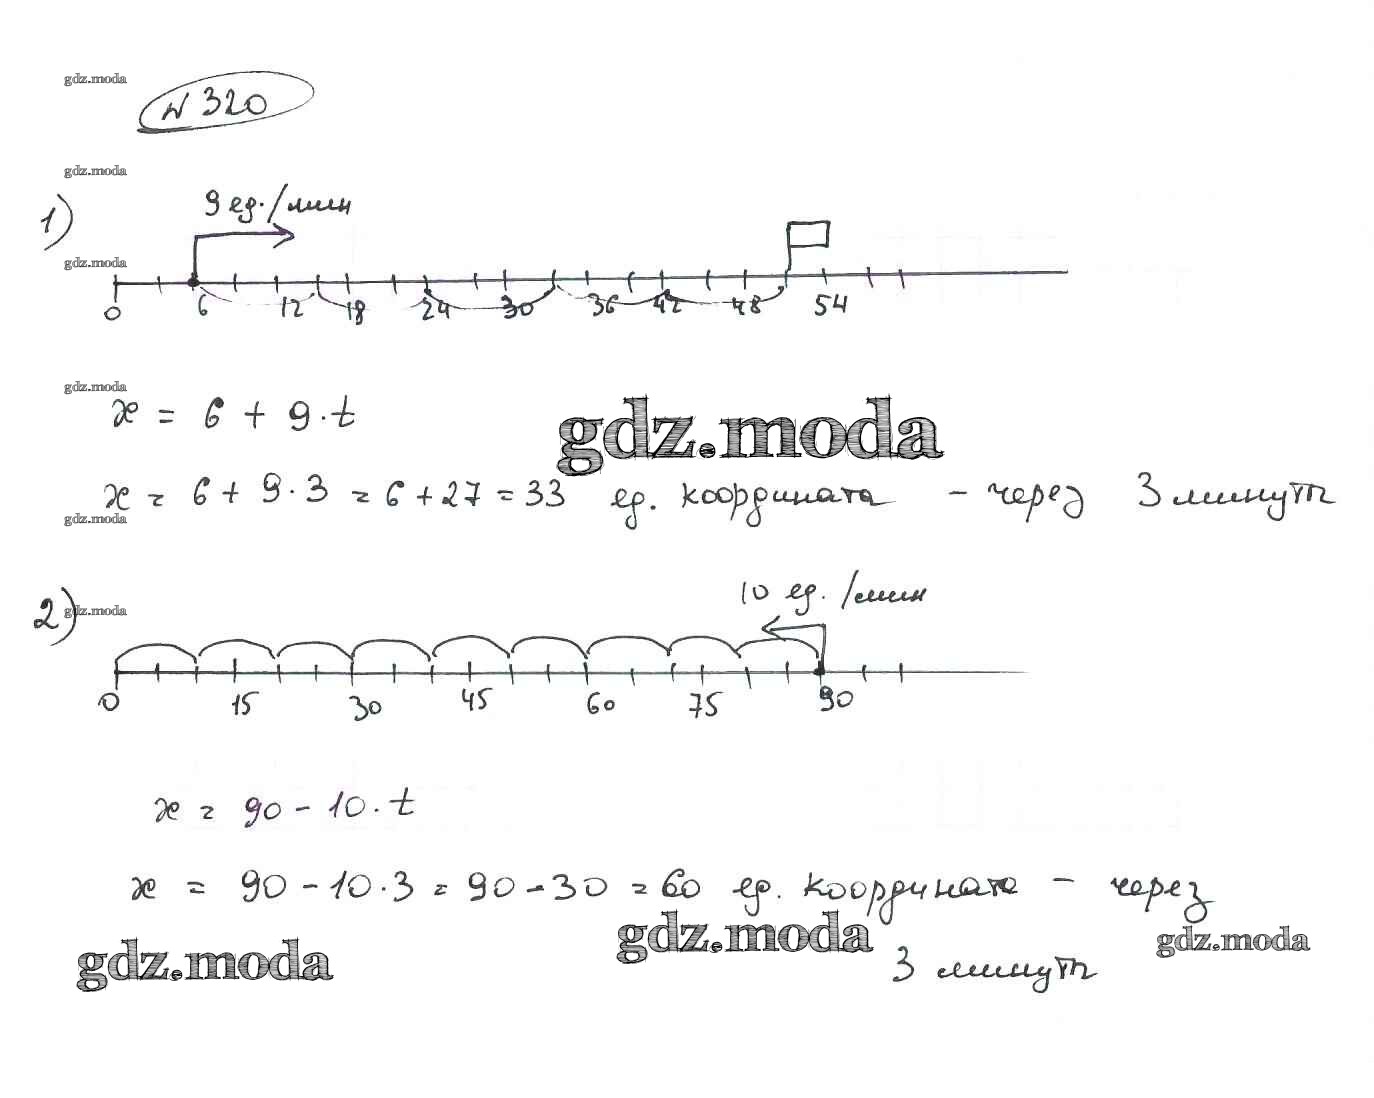 gdz.moda
№ 320
gdz.moda
1)
9 ед./мин
gdz.moda
0 6 12 18 24 30 36 42 48 54
gdz.moda
x = 6 + 9 · t
gdz.moda
x = 6 + 9 · 3 = 6 + 27 = 33 ед. координата – через 3 минуты
gdz.moda
2)
gdz.moda
10 ед./мин
0 15 30 45 60 75 90
x = 90 – 10 · t
x = 90 – 10 · 3 = 90 – 30 = 60 ед. координата – через
gdz.moda gdz.moda gdz.moda
3 минуты